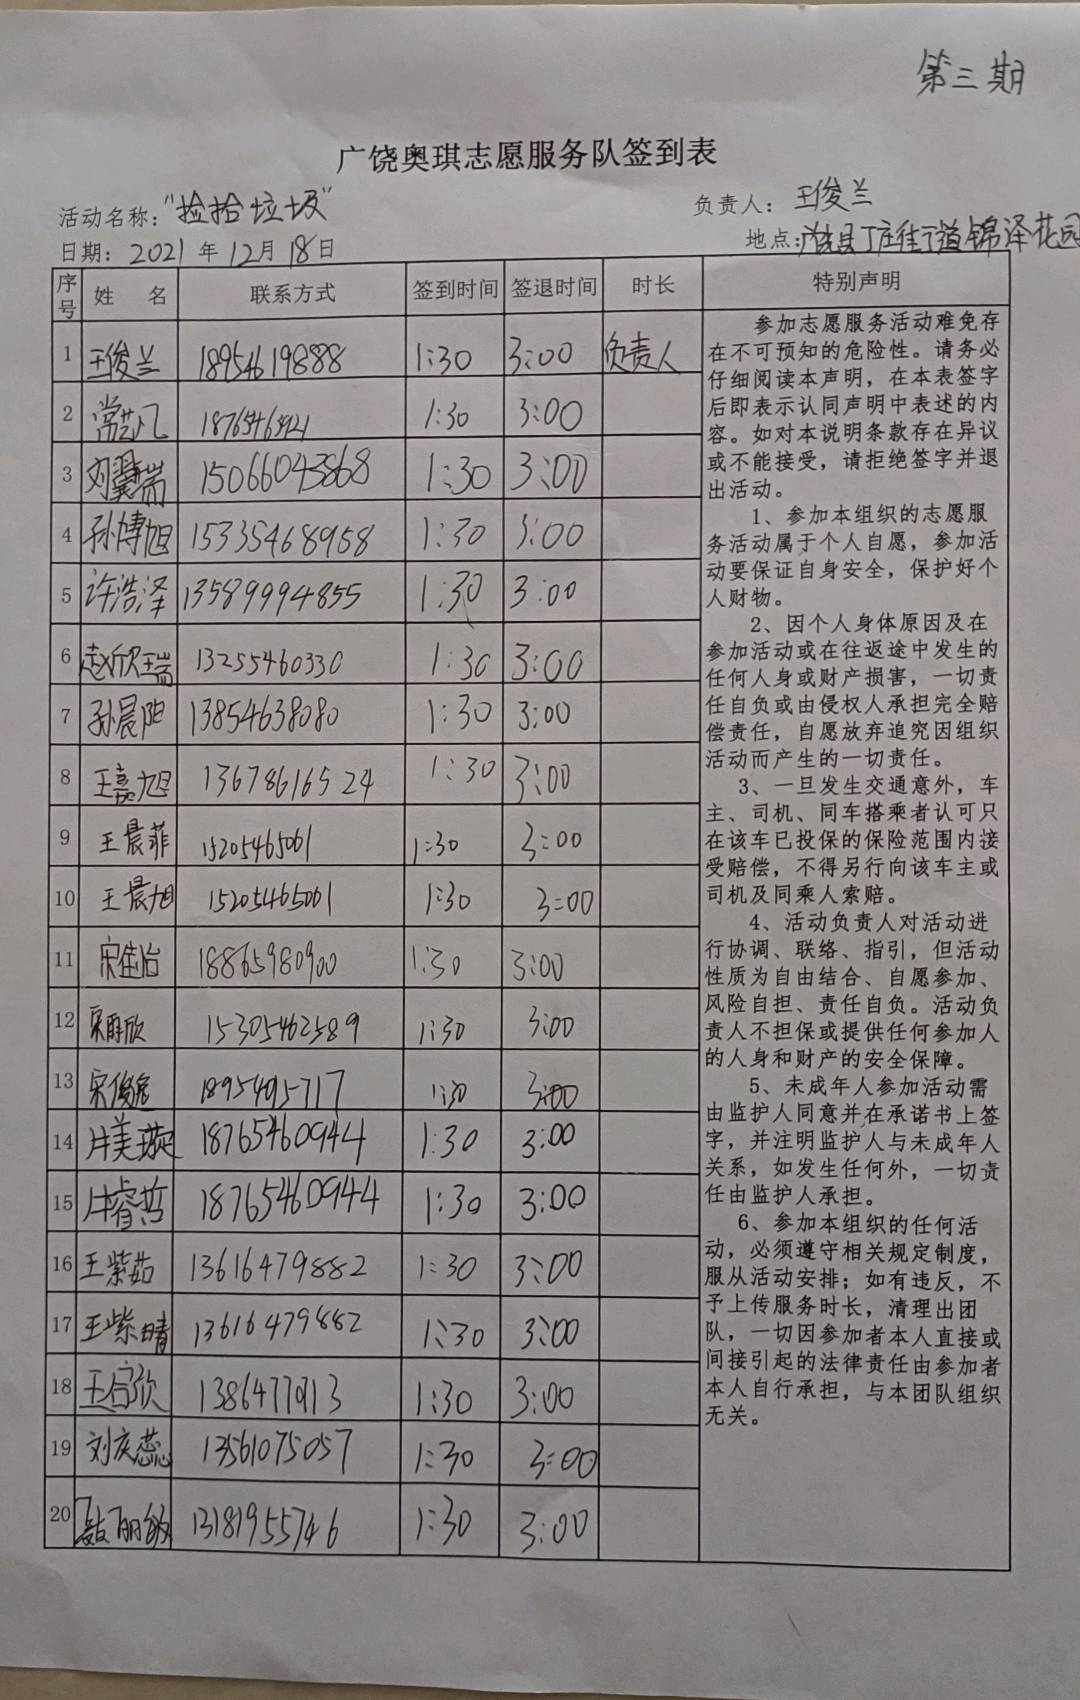 第三期
广饶奥琪志愿服务队签到表
活动名称："捡拾垃圾" 负责人：王俊兰
日期：2021年12月18日 地点：丁庄街道锦泽花园
序号 姓 名 联系方式 签到时间 签退时间 时长 特别声明
1 王俊兰 18954619888 1:30 3:00 负责人
2 1:30 3:00
3 刘翼瑞 15066043868 1:30 3:00
4 孙博旭 15335468958 1:30 3:00
5 许浩泽 13589994855 1:30 3:00
6 赵欣瑞 13255460330 1:30 3:00
7 孙晨阳 13854638080 1:30 3:00
8 王嘉旭 13678616524 1:30 3:00
9 王晨菲 15205465061 1:30 3:00
10 王晨旭 15205465061 1:30 3:00
11 宋佳怡 18865980900 1:30 3:00
12 15305462589 1:30 3:00
13 1:30 3:00
14 美璇 18765460944 1:30 3:00
15 睿哲 18765460944 1:30 3:00
16 王紫茹 13616479882 1:30 3:00
17 王紫晴 13616479882 1:30 3:00
18 1:30 3:00
19 刘庆蕊 13561075057 1:30 3:00
20 13181955746 1:30 3:00
参加志愿服务活动难免存
在不可预知的危险性。请务必
仔细阅读本声明，在本表签字
后即表示认同声明中表述的内
容。如对本说明条款存在异议
或不能接受，请拒绝签字并退
出活动。
1、参加本组织的志愿服
务活动属于个人自愿，参加活
动要保证自身安全，保护好个
人财物。
2、因个人身体原因及在
参加活动或在往返途中发生的
任何人身或财产损害，一切责
任自负或由侵权人承担完全赔
偿责任，自愿放弃追究因组织
活动而产生的一切责任。
3、一旦发生交通意外，车
主、司机、同车搭乘者认可只
在该车已投保的保险范围内接
受赔偿，不得另行向该车主或
司机及同乘人索赔。
4、活动负责人对活动进
行协调、联络、指引，但活动
性质为自由结合、自愿参加、
风险自担、责任自负。活动负
责人不担保或提供任何参加人
的人身和财产的安全保障。
5、未成年人参加活动需
由监护人同意并在承诺书上签
字，并注明监护人与未成年人
关系，如发生任何外，一切责
任由监护人承担。
6、参加本组织的任何活
动，必须遵守相关规定制度，
服从活动安排；如有违反，不
予上传服务时长，清理出团
队，一切因参加者本人直接或
间接引起的法律责任由参加者
本人自行承担，与本团队组织
无关。